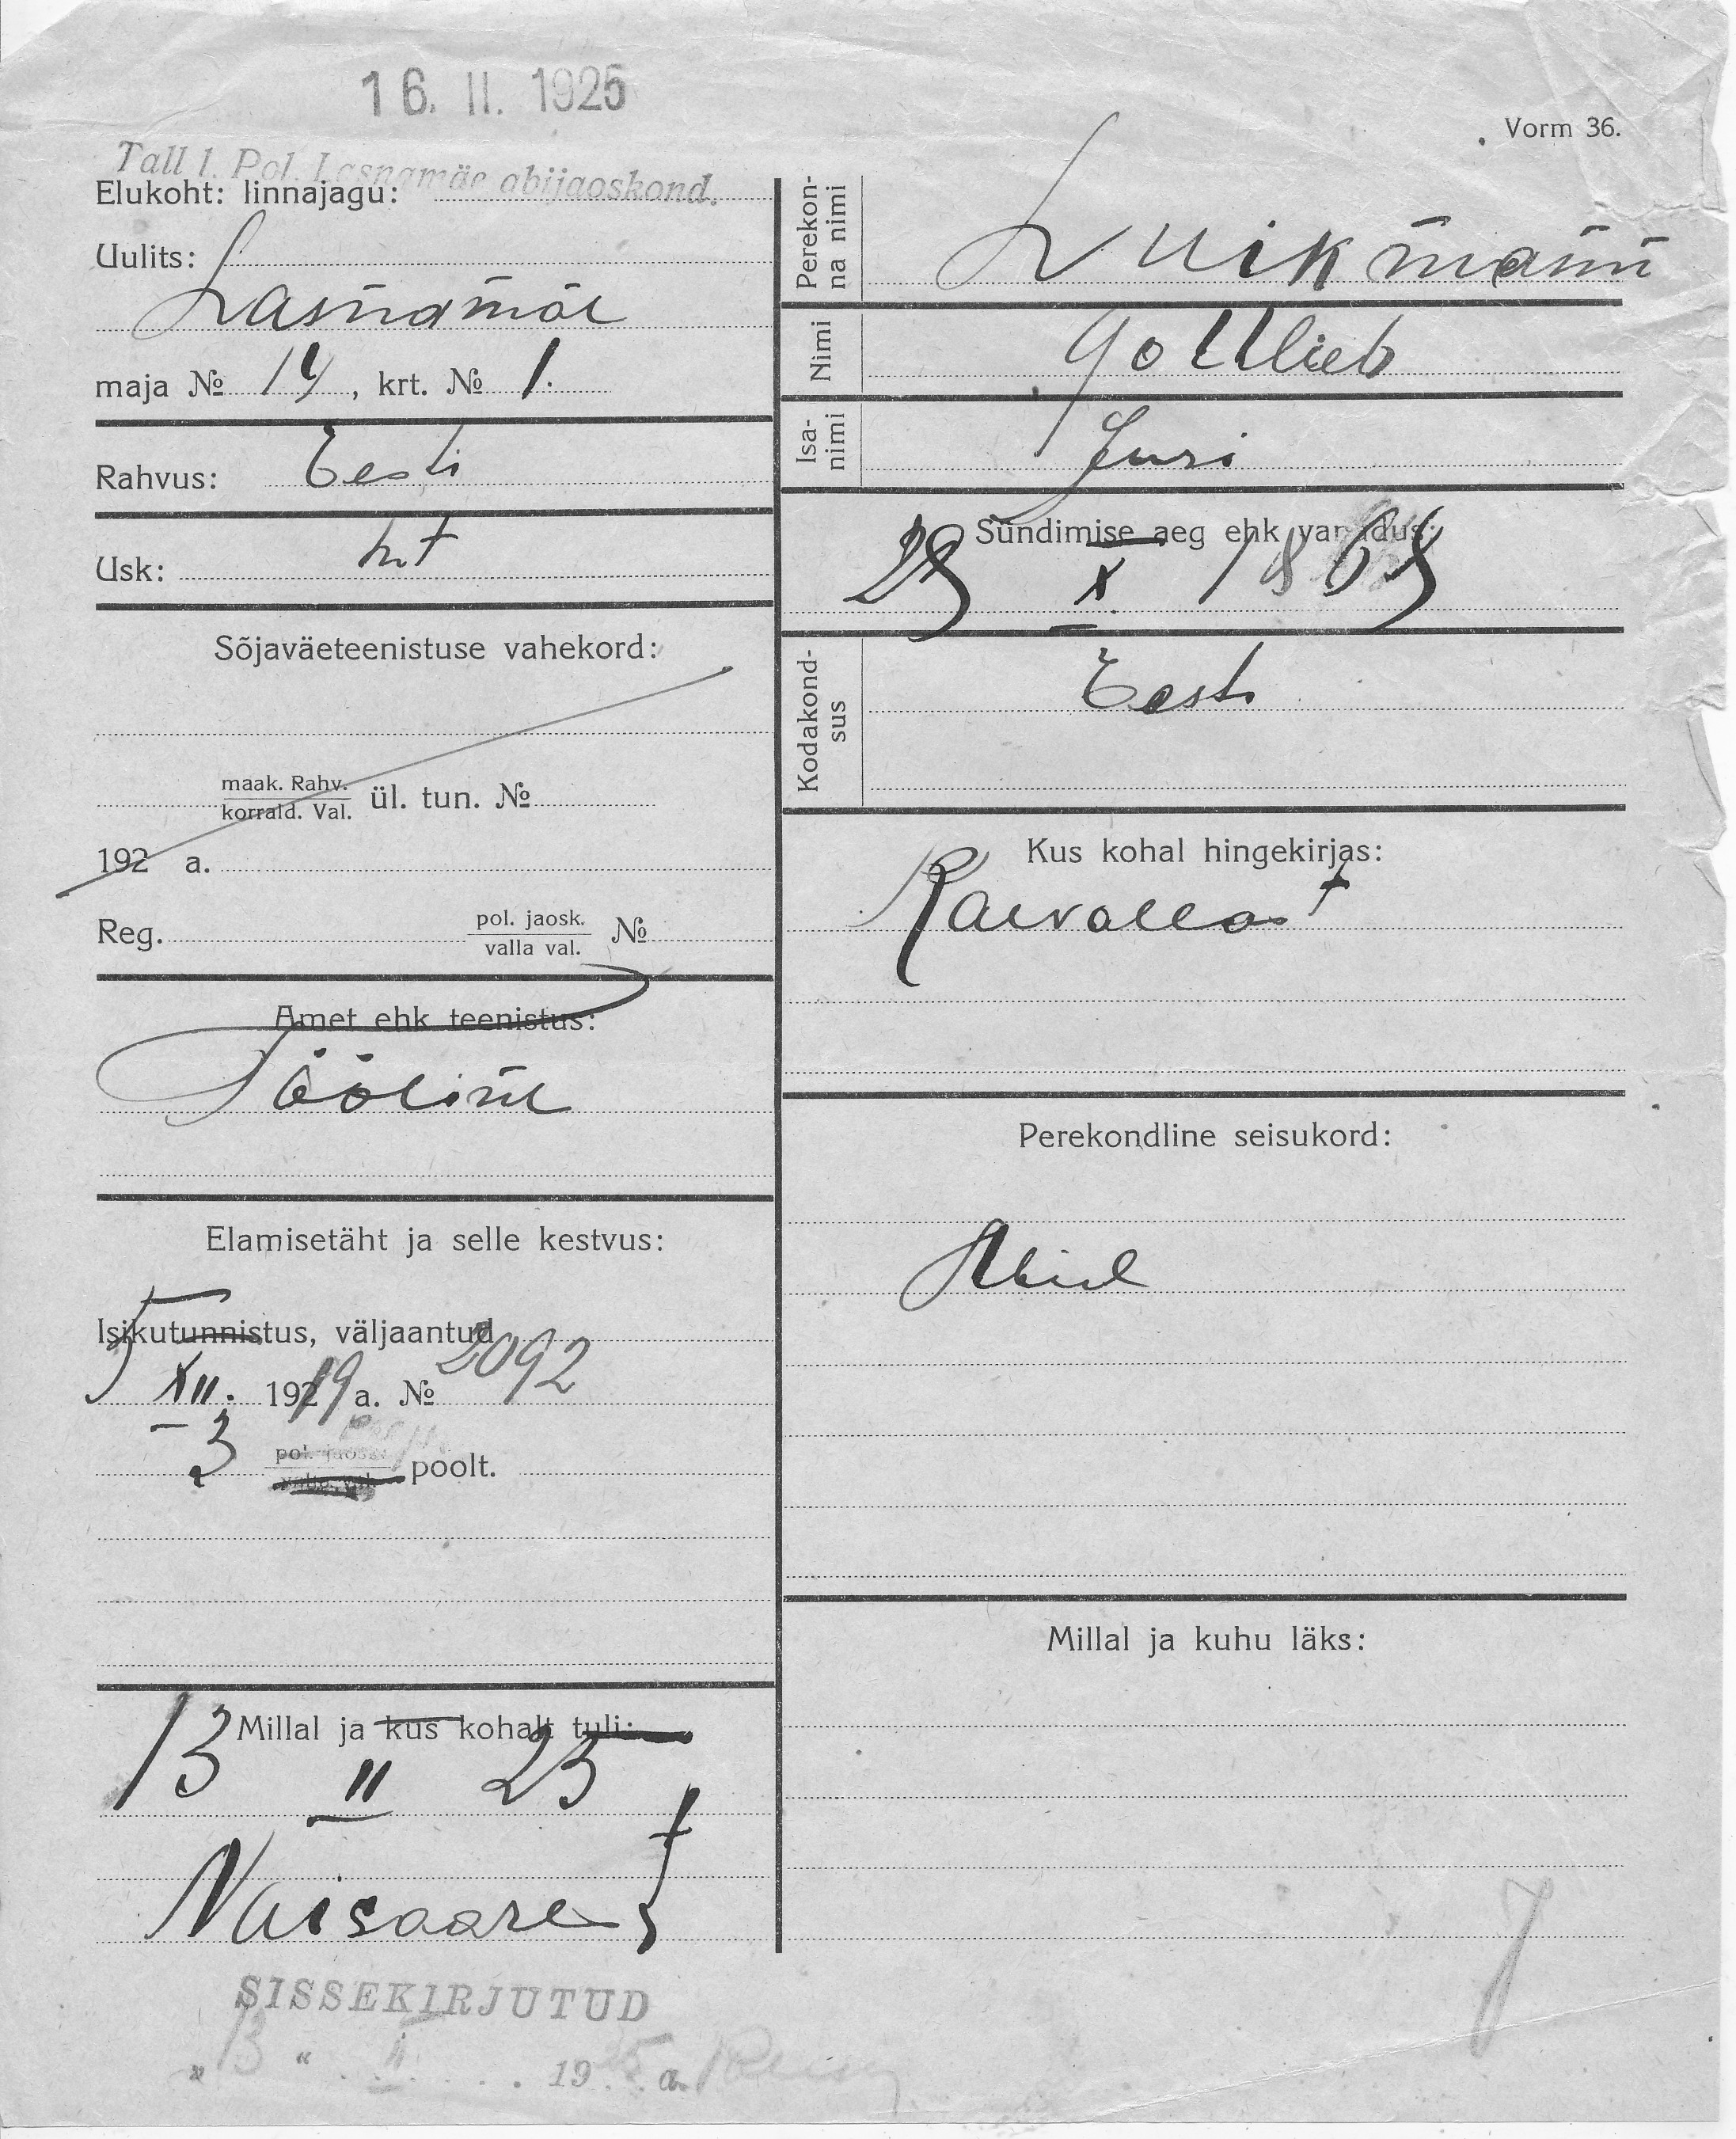 16. II. 1925
Vorm 36.
Tall 1. Pol. Lasnamäe abijaoskond.
Elukoht: linnajagu:
Uulits:
Lasnamäe
maja № 14, krt. № 1.
Rahvus: Eesti
Usk: lut
Sõjaväeteenistuse vahekord:
maak. Rahv.
korrald. Val. ül. tun. №
192 a.
Reg. pol. jaosk.
valla val. №
Amet ehk teenistus:
Tööline
Elamisetäht ja selle kestvus:
Isikutunnistus, väljaantud
5 XII. 1919 a. № 2092
3 pol. jaosk. poolt.
Millal ja kus kohalt tuli:
13 II 25
Naisaarelt
SISSEKIRJUTUD
„13“ II 1925 a.
Perekon-
na nimi
Luikmann
Nimi
Gottlieb
Isa-
nimi
Juri
Sündimise aeg ehk vanadus:
29 X. 1869
Kodakond-
sus
Eesti
Kus kohal hingekirjas:
Raevallast
Perekondline seisukord:
Abiel
Millal ja kuhu läks: